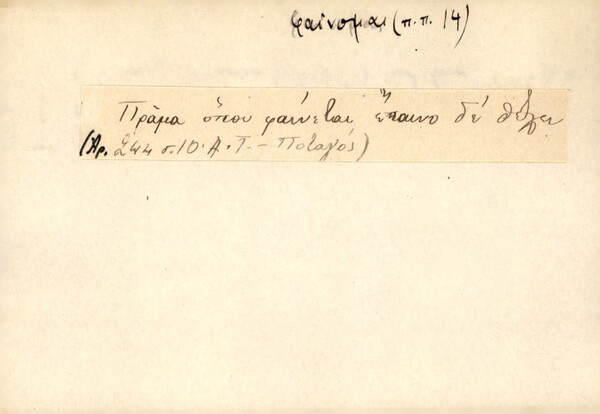 φαίνομαι (π.π. 14)
Πρᾶμα ὅπου φαίνεται ἔπαινο δέ θέλει
(Ἀρ. 244 σ. 10. Α. Τ. - Ποταμός)